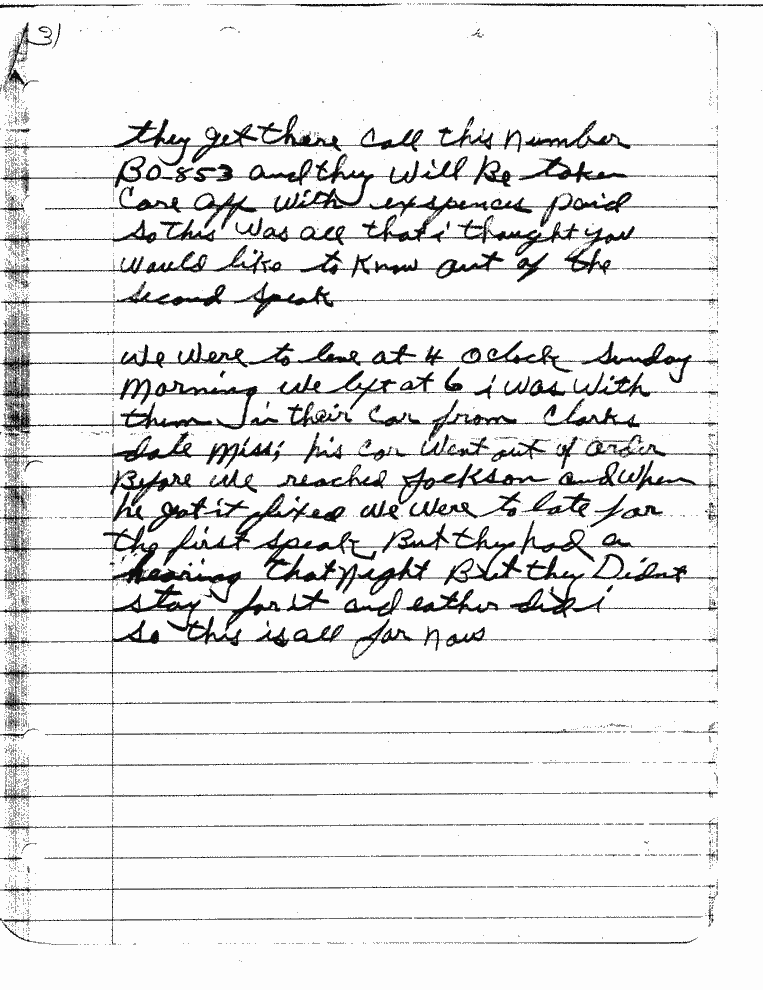 3)
they get there call this Number
BO-853 and they Will Be taken
Care off With exspences paid
So this Was all that i thought you
Would like to Know out of the
second speak
We Were to leve at 4 Oclock Sunday
Morning We left at 6 i Was With
them in their Car from Clarks
dale Miss; his Car Went out of order
Before We reached Jackson and When
he got it fixed We Were to late for
the first speak But they had an
hearing that Night But they Didnt
stay for it and eather did i
So this is all for Now